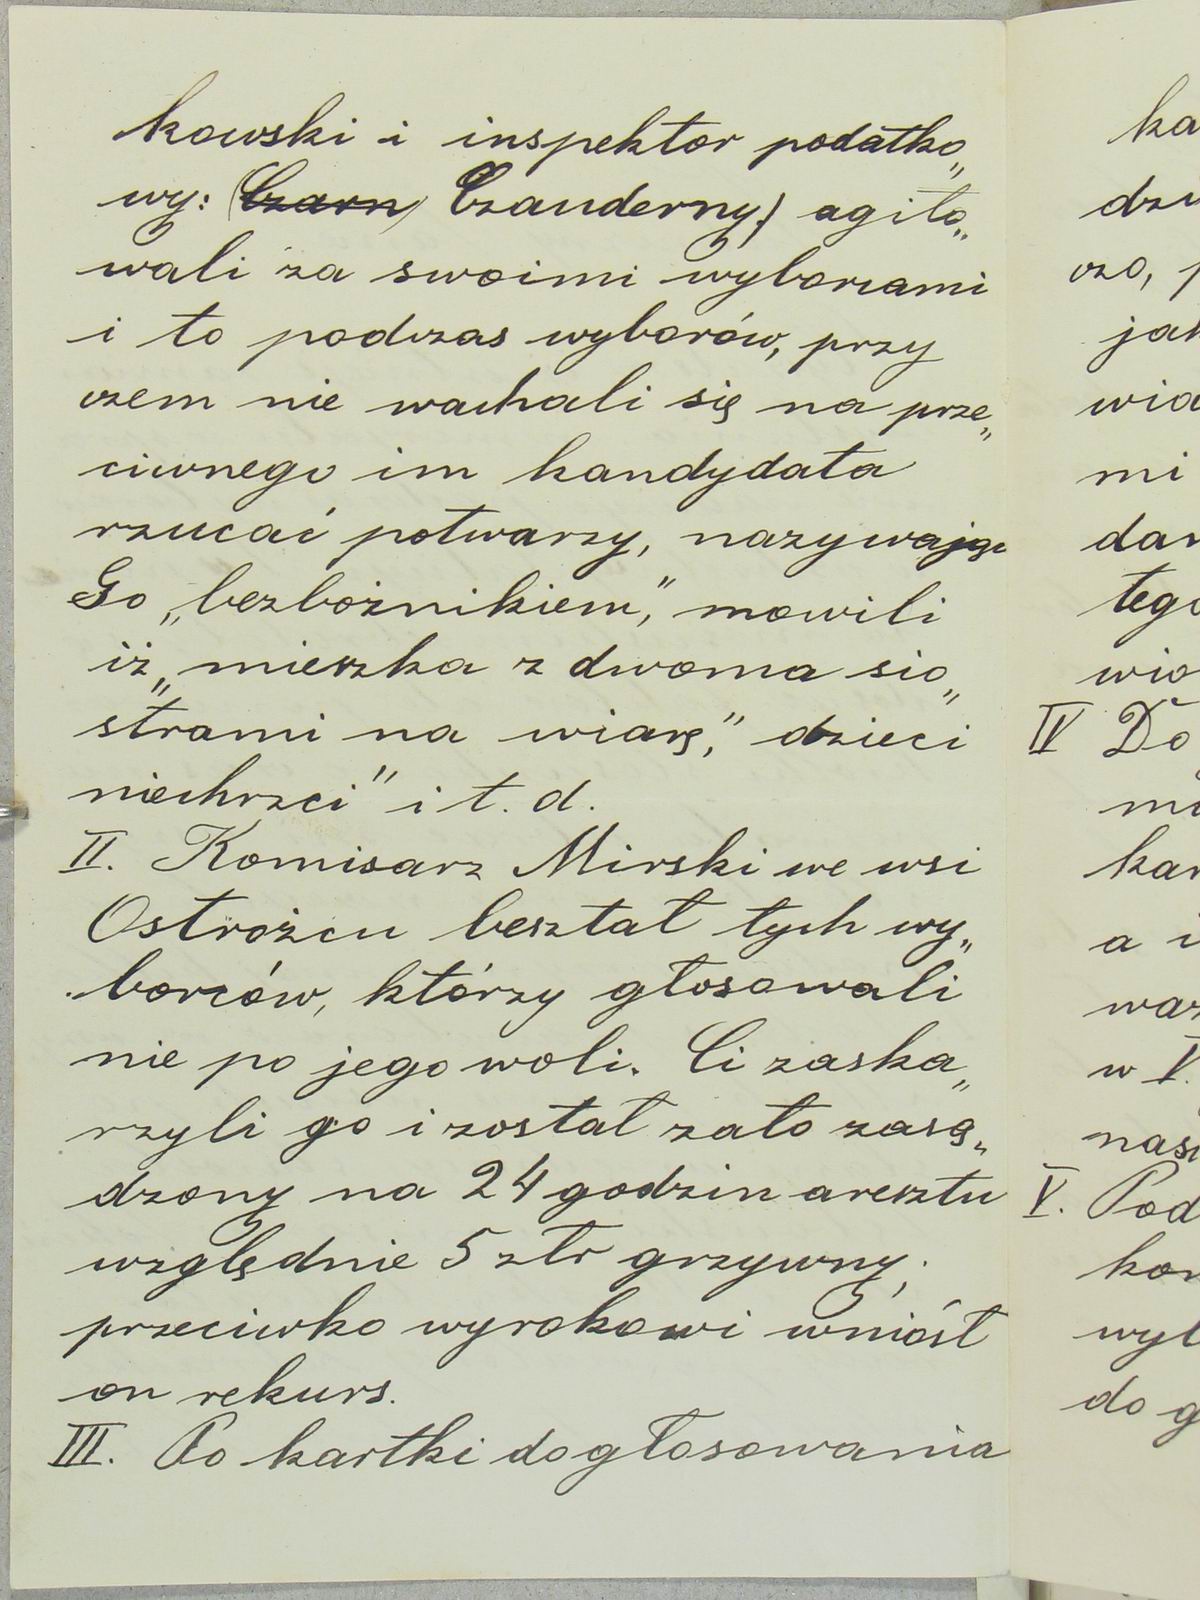 kowski i inspektor podatko„
wy: (Czarn) Czauderny,) agito„
wali za swoimi wyborcami
i to podczas wyborów, przy
czem nie wachali się na prze„
ciwnego im kandydata
rzucać potwarzy, nazywając
Go „bezbożnikiem”, mowili
iż „mieszka z dwoma sio„
strami na wiarę,” dzieci
niechrzci” i t. d.
II. Komisarz Mirski we wsi
Ostrożcu beształ tych wy„
borców, którzy głosowali
nie po jego woli. Ci zaska„
rzyli go i został zato zasą„
dzony na 24 godzin aresztu
względnie 5 złr grzywny;
przeciwko wyrokowi wniósł
on rekurs.
III. Po kartki do głosowania
ka
dzi
czo, p
jak
wia
mi
dan
tego
wio
IV Do
mi
kar
a w
waż
w V.
nasi
V. Pod
kom
wyb
do g